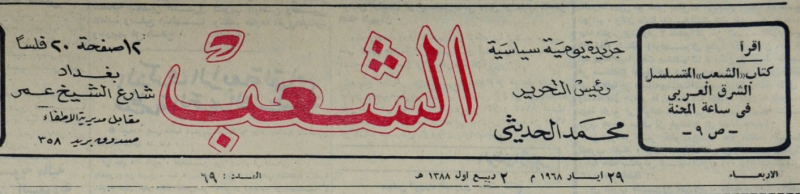 اقرأ
كتاب «الشعب» المتسلسل
الشرق العربي
في ساعة المحنة
- ص ٩ -
جريدة يومية سياسية
رئيس التحرير
محمد الحديثي
الشعب
١٢ صفحة ٢٠ فلسا
بغداد
شارع الشيخ عمر
مقابل مديرية الاطفاء
صندوق بريد ٣٥٨
الاربعاء ٢٩ ايار ١٩٦٨ م ٢ ربيع اول ١٣٨٨ هـ العدد : ٦٩